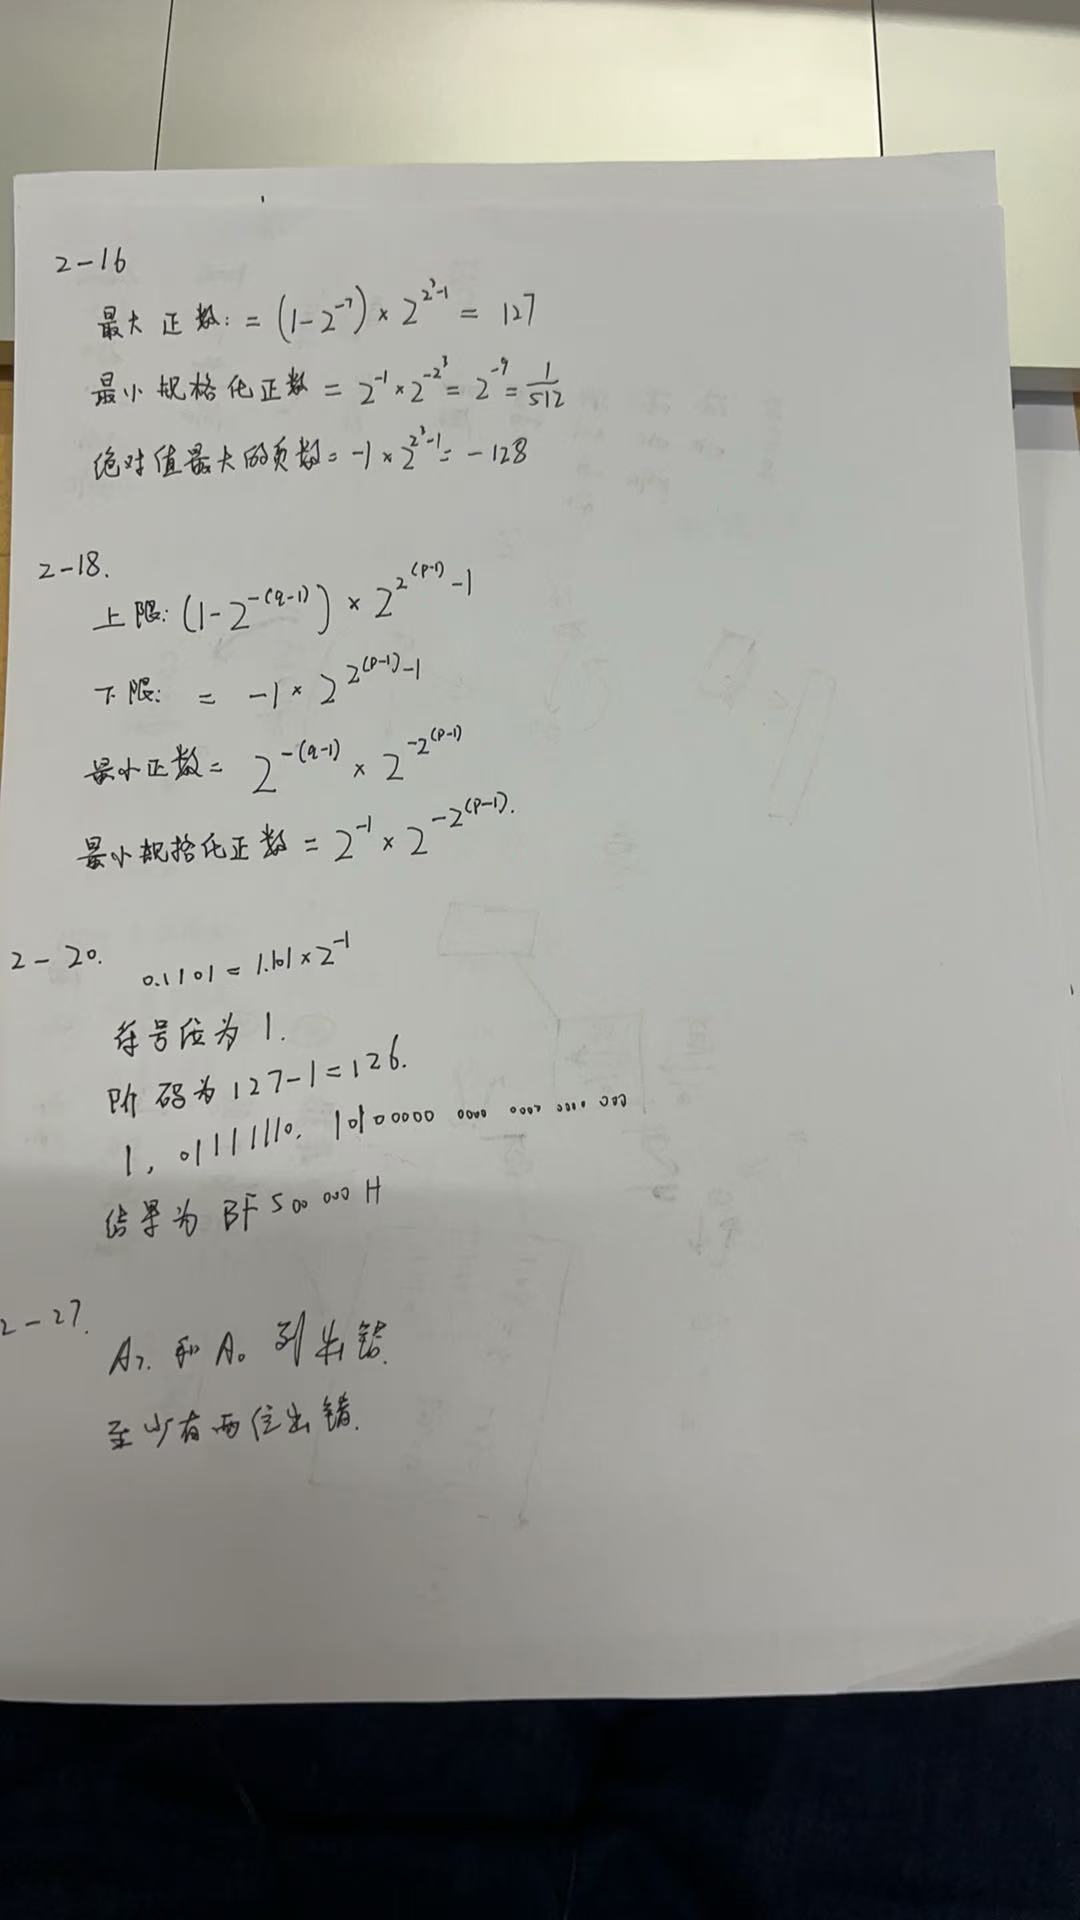 2-16
最大正数:=(1-2^{-7})×2^{2^3-1}=127
最小规格化正数=2^{-1}×2^{-2^3}=2^{-9}=\frac{1}{512}
绝对值最大的负数=-1×2^{2^3-1}=-128
2-18.
上限:(1-2^{-(q-1)})×2^{2^{(p-1)}-1}
下限:=-1×2^{2^{(p-1)}-1}
最小正数=2^{-(q-1)}×2^{-2^{(p-1)}}
最小规格化正数=2^{-1}×2^{-2^{(p-1)}}.
2-20. 0.1101=1.101×2^{-1}
符号位为1.
阶码为127-1=126.
1,01111110.10100000 0000 0000 0000 000
结果为BF500000H
2-27.
A7.和A0列出错.
至少有两位出错.